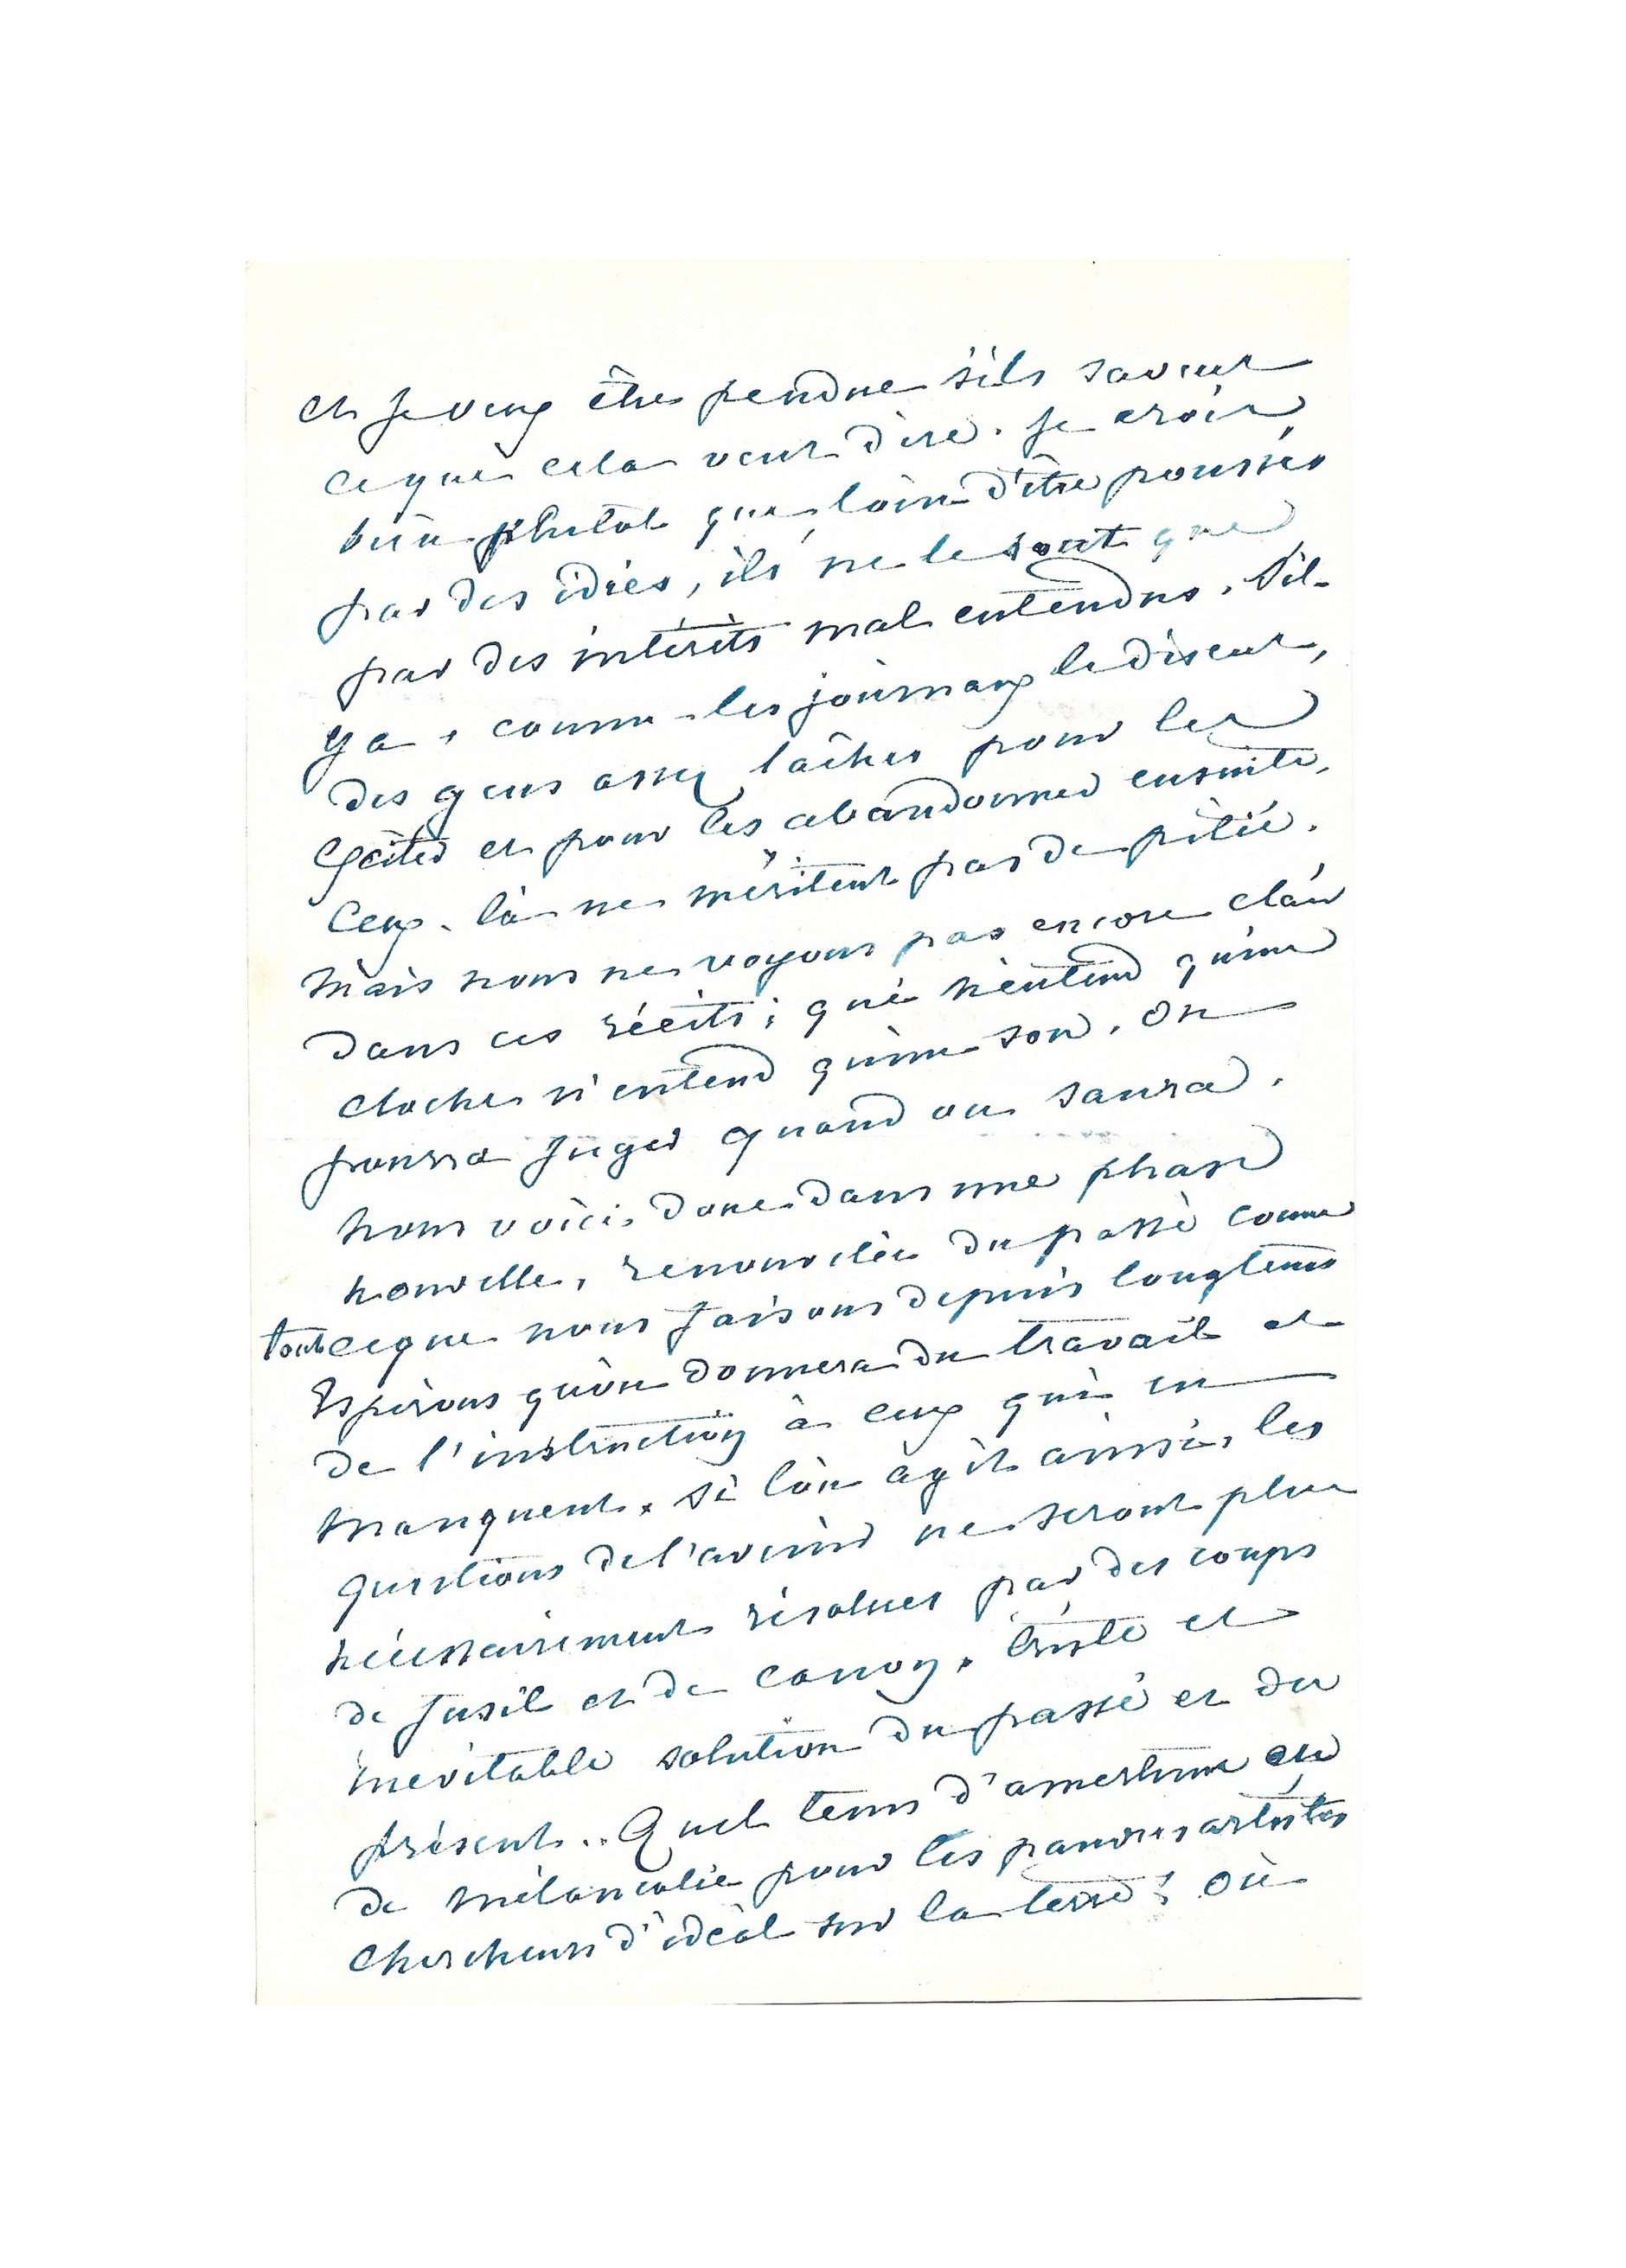 et je veux être pendue s'ils savent
ce que cela veut dire. je crois
bien plutot que, loin d'être poussés
par des idées, ils ne le sont que
par des intérêts mal entendus. S'il
y a, comme les journaux le disent,
des gens assez lâches pour les
exciter et pour les abandonner ensuite,
Ceux-là ne méritent pas de pitié.
Mais nous ne voyons pas encore clair
dans ces récits; qui n'entend qu'une
cloche n'entend qu'un son. On
pourra juger quand on saura.
Nous voici donc dans une phase
nouvelle, renouvelée du passé comme
tout ce que nous faisons depuis longtems
Espérons qu'on donnera du travail et
de l'instruction à ceux qui en
manquent. Si l'on agit ainsi, les
questions de l'avenir ne seront plus
nécessairement résolues par des coups
de fusil et de canon. triste et
inévitable solution du passé et du
présent.. Quel tems d'amertume et
de mélancolie pour les pauvres artistes
chercheurs d'idéal sur la terre! Où